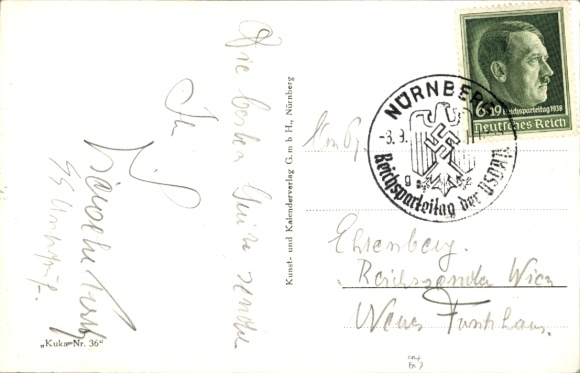 Die besten Grüße sendet
Ihr
SS
„Kuka-Nr. 36“
Kunst- und Kalenderverlag G.m b H., Nürnberg
6+19 Reichsparteitag 1938
Deutsches Reich
NÜRNBERG
-8.9.
Reichsparteitag der NSDAP
g
An
Ehrenberg.
Reichssender Wien
Neues Funkhaus.